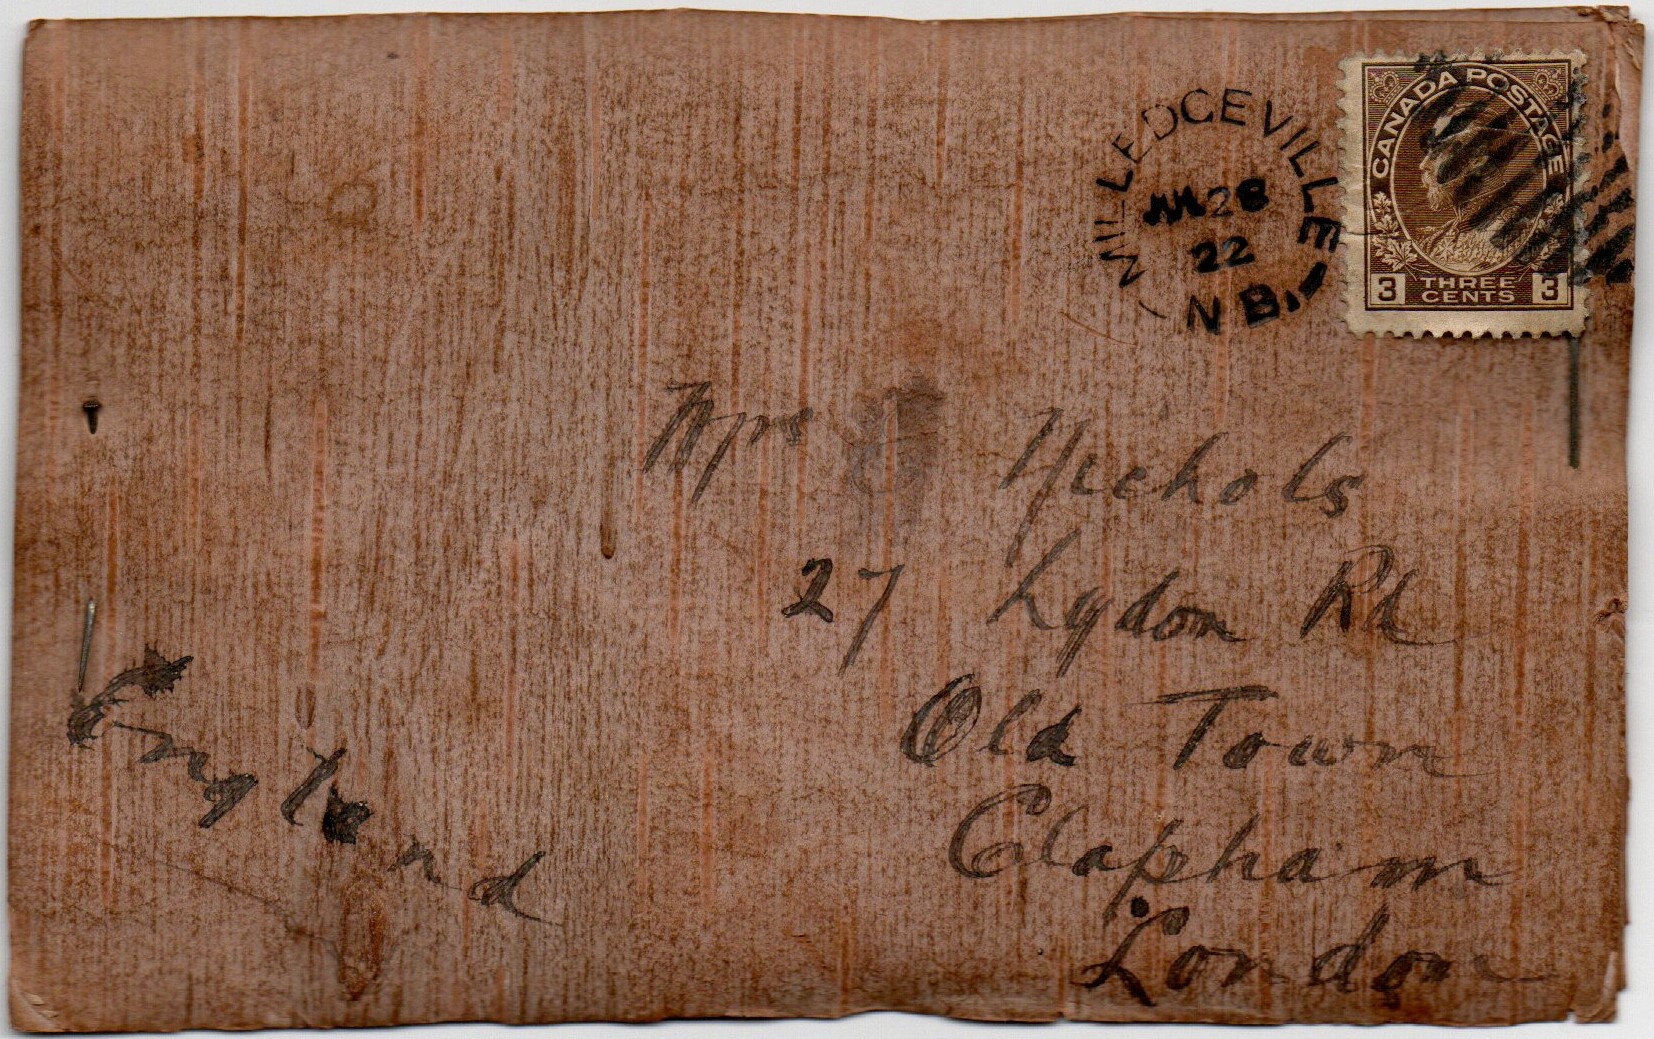 MILLEDGEVILLE
JUL 28
22
N B.
CANADA POSTAGE
3 THREE CENTS 3
Mrs E Nichols
27 Lydon Rd
Old Town
Clapham
London
England